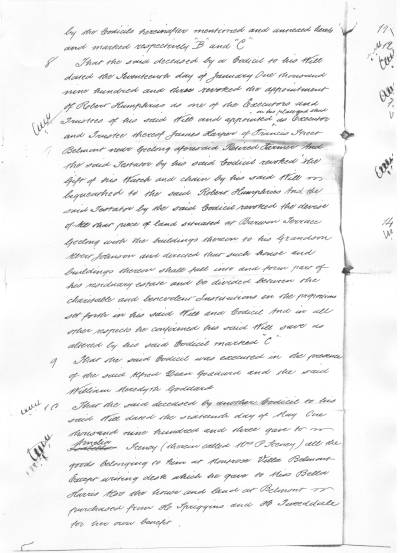 by the Codicils hereinafter mentioned and annexed hereto
and marked respectively "B" and "C"
8 That the said deceased by a Codicil to his Will
dated the Seventeenth day of January One thousand
nine hundred and three revoked the appointment
of Robert Humphries as one of the Executors and
Trustees of his said Will and appointed in his place and stead as Executor
and Trustee thereof James Harper of Francis Street
Belmont near Geelong aforesaid Retired Farmer And
the said Testator by his said Codicil revoked the
Gift of his Watch and chain by his said Will
bequeathed to the said Robert Humphries And the
said Testator by the said Codicil revoked the devise
of All that piece of land situated at Barwon Terrace
Geelong with the buildings thereon to his Grandson
Albert Johnson and directed that such house and
buildings thereon shall fall into and form part of
his residuary estate and be divided between the
charitable and benevolent Institutions in the proportions
set forth in his said Will and Codicil And in all
other respects he confirmed his said Will save as
altered by his said Codicil marked "C"
9 That the said Codicil was executed in the presence
of the said Alfred Dean Goddard and the said
William Meredyth Goddard
10 That the said deceased by another Codicil to his
said Will dated the sixteenth day of May One
thousand nine hundred and three gave to
Amelia Feeney (therein called Mrs P Feeney) all the
goods belonging to him at Montrose Villa Belmont
Except writing desk which he gave to Miss Bella
Harris Also the house and land at Belmont
purchased from H Spriggins and H Tweeddale
for her own benefit.